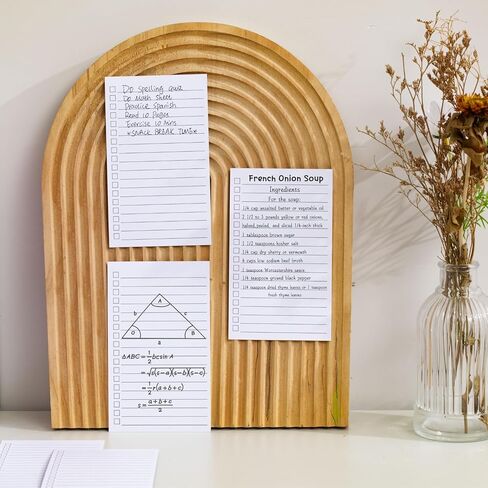 Do Spelling Quiz
Do Math Sheet
Practice Spanish
Read 10 Pages
Exercise 10 Mins
*SNACK BREAK TIME*
French Onion Soup
Ingredients
For the soup:
1/4 cup unsalted butter or vegetable oil
2 1/2 to 3 pounds yellow or red onions,
halved, peeled, and sliced 1/4-inch thick
1 tablespoon brown sugar
1 1/2 teaspoons kosher salt
1/4 cup dry sherry or vermouth
6 cups low sodium beef broth
1 teaspoon Worcestershire sauce
1/4 teaspoon ground black pepper
1/4 teaspoon dried thyme leaves or 1 teaspoon
fresh thyme leaves
A
b c
B
a
ΔABC = 1/2 bc sin A
= √s(s-a)(s-b)(s-c)
= 1/2 r(a+b+c)
s = a+b+c/2